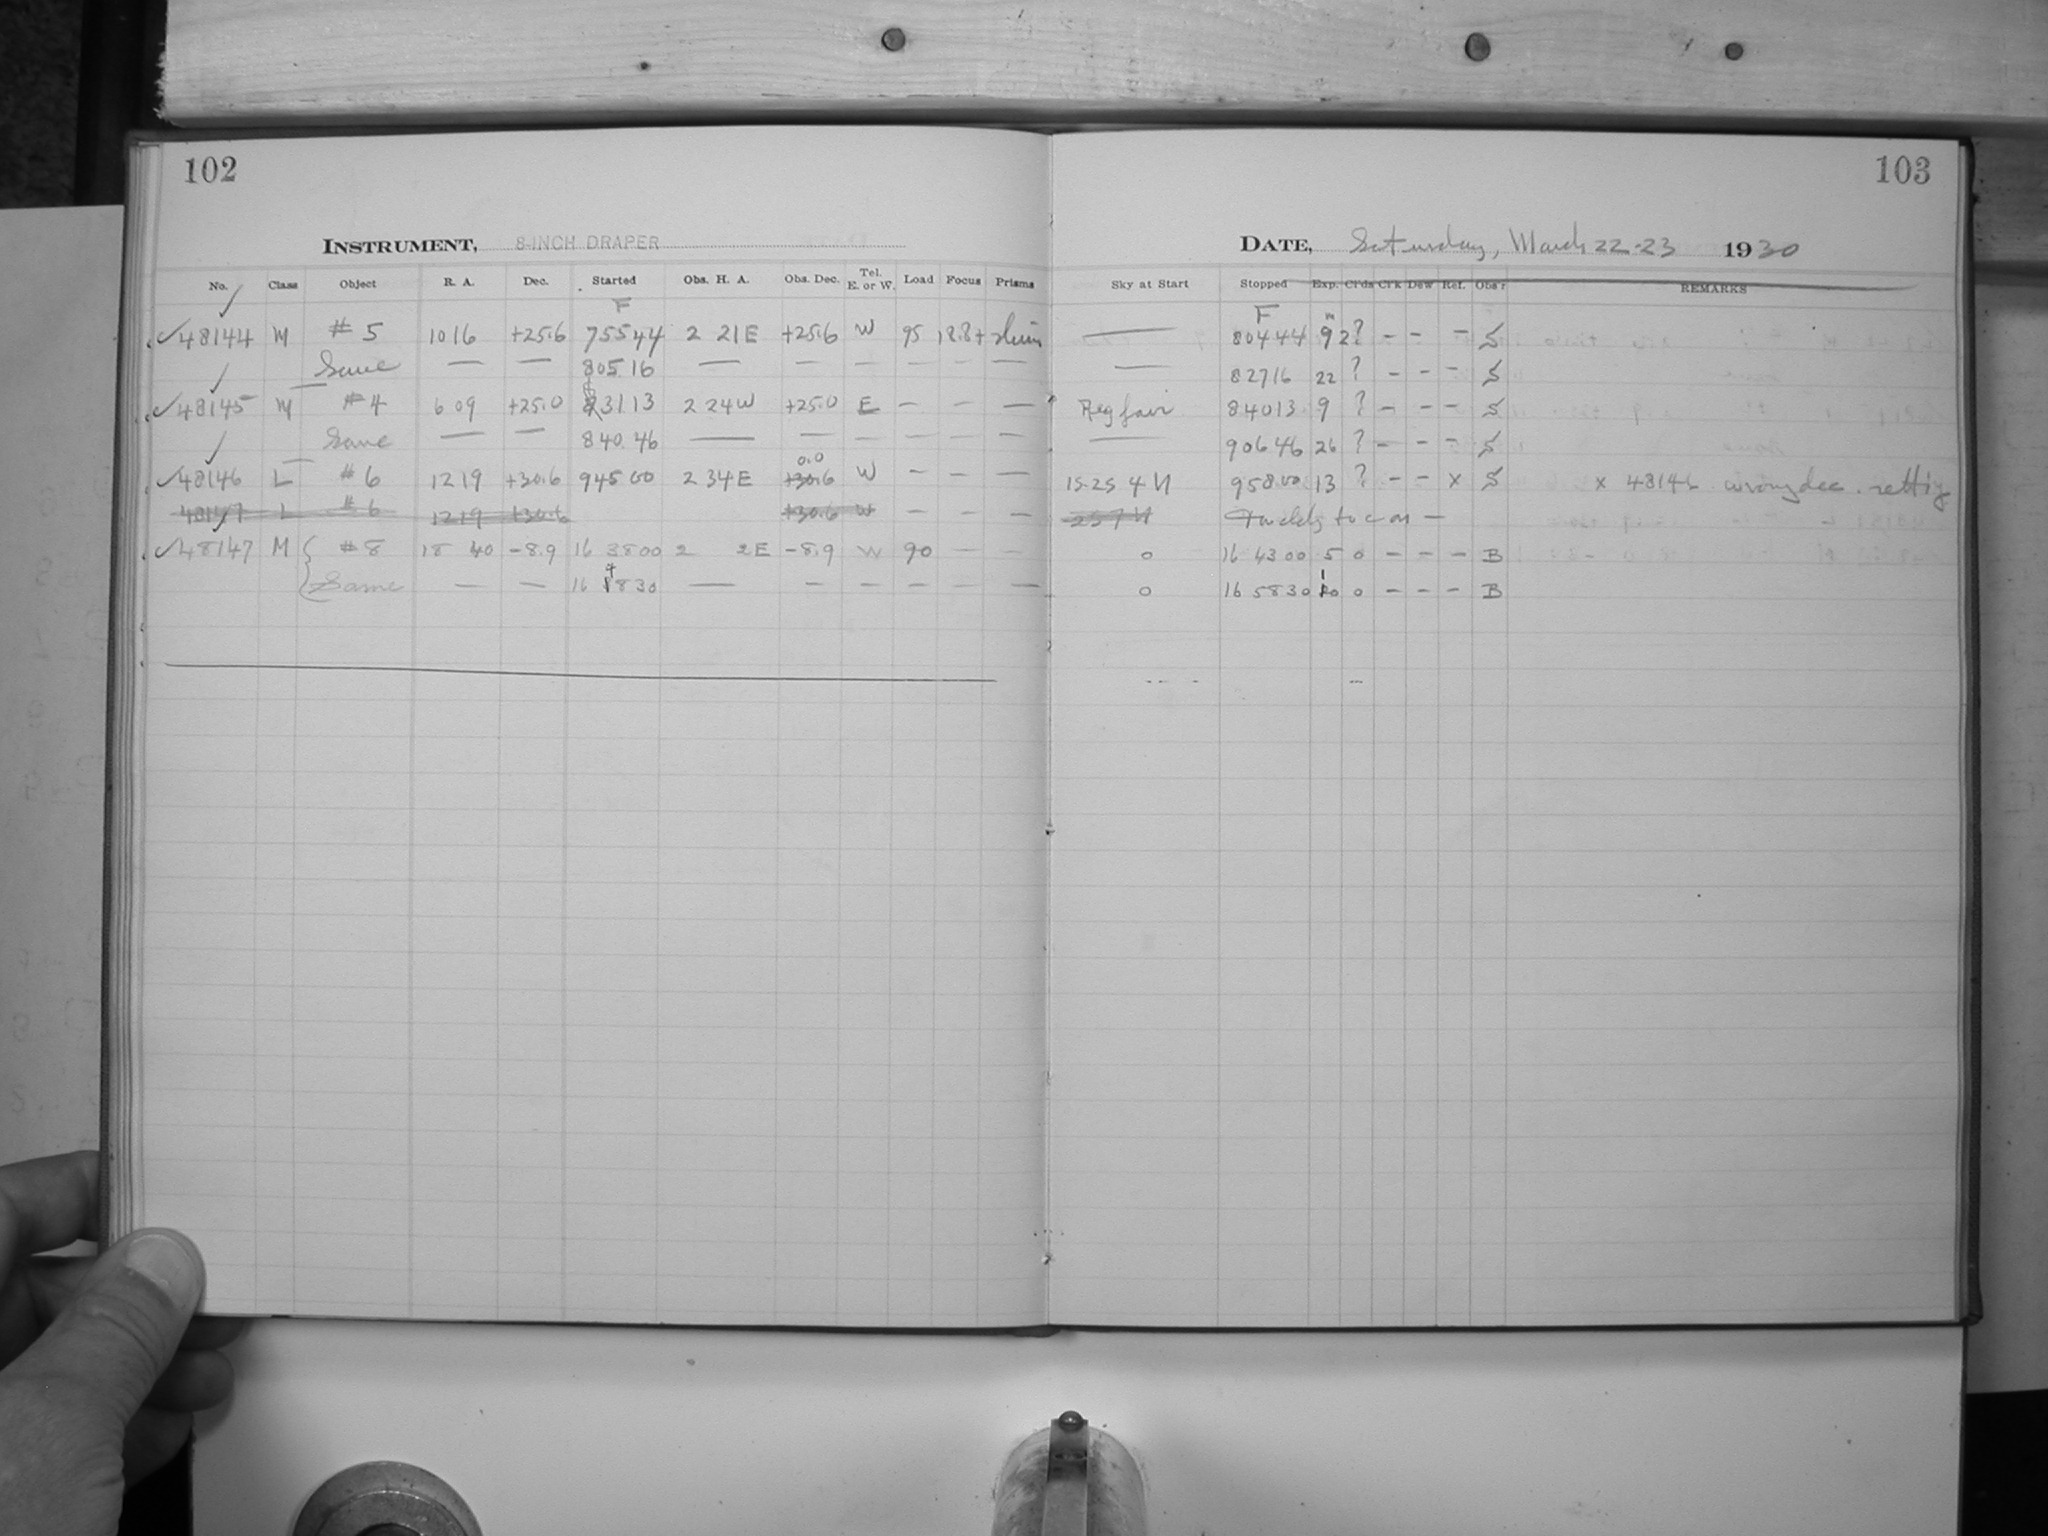 102
103
INSTRUMENT, 8-INCH DRAPER
DATE, Saturday, March 22-23 1930
No. Class Object R. A. Dec. Started Obs. H. A. Obs. Dec. Tel. E. or W. Load Focus Prisms Sky at Start Stopped Exp. Cl'ds Cl'k Dew Ref. Obs'r REMARKS
F F
✓48144 M #5 10 16 +25.6 7 55 44 2 21 E +25.6 W 95 18.8+ — 8 04 44 9 m 2? – – – S
Same — — 8 05 16 — — — — — — — 8 27 16 22 ? – – – S
✓48145 M #4 6 09 +25.0 8 31 13 2 24 W +25.0 E — — — Reg fair 8 40 13 9 ? – – – S
Same — — 8 40 46 — — — — — — — 9 06 46 26 ? – – – S
✓48146 L #6 12 19 +30.6 9 45 00 2 34 E +30.6 0.0 W – – — 15.25 4 N 9 58 00 13 ? – – x S x 48146 wrong dec. setting
48147 L #6 12 19 +30.6 +30.6 W 2 5 7 N —
✓48147 M { #8 18 40 -8.9 16 38 00 2 2 E -8.9 W 90 — — 0 16 43 00 5 0 – – – B
Same — — 16 48 30 — – – – – – — 0 16 58 30 10 0 – – – B